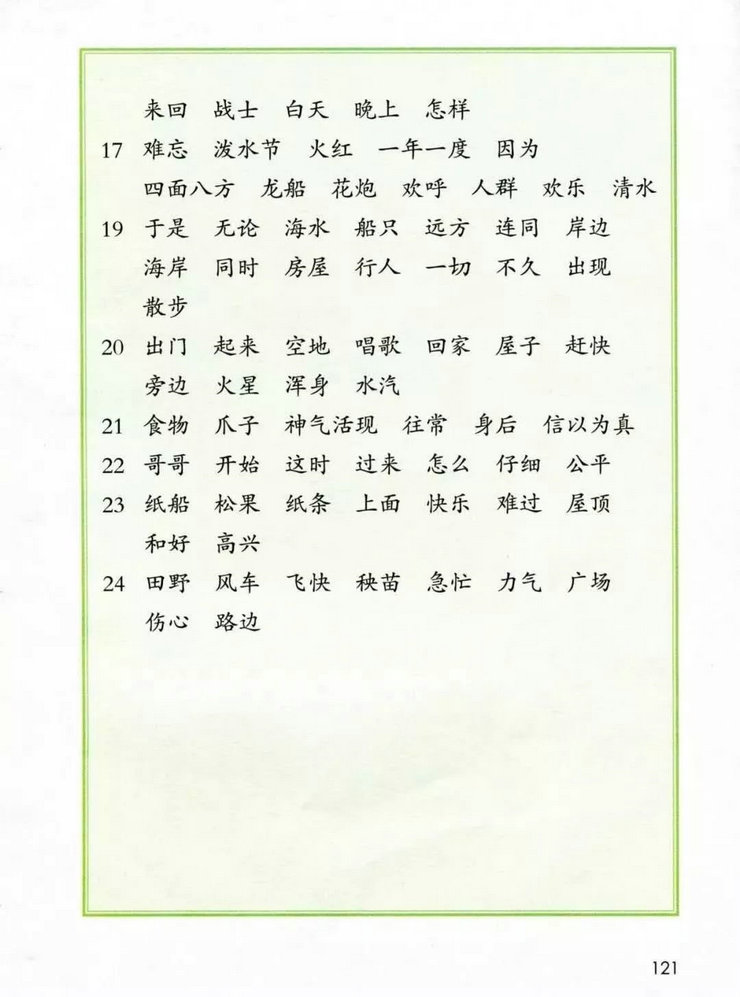 来回 战士 白天 晚上 怎样
17 难忘 泼水节 火红 一年一度 因为
四面八方 龙船 花炮 欢呼 人群 欢乐 清水
19 于是 无论 海水 船只 远方 连同 岸边
海岸 同时 房屋 行人 一切 不久 出现
散步
20 出门 起来 空地 唱歌 回家 屋子 赶快
旁边 火星 浑身 水汽
21 食物 爪子 神气活现 往常 身后 信以为真
22 哥哥 开始 这时 过来 怎么 仔细 公平
23 纸船 松果 纸条 上面 快乐 难过 屋顶
和好 高兴
24 田野 风车 飞快 秧苗 急忙 力气 广场
伤心 路边
121